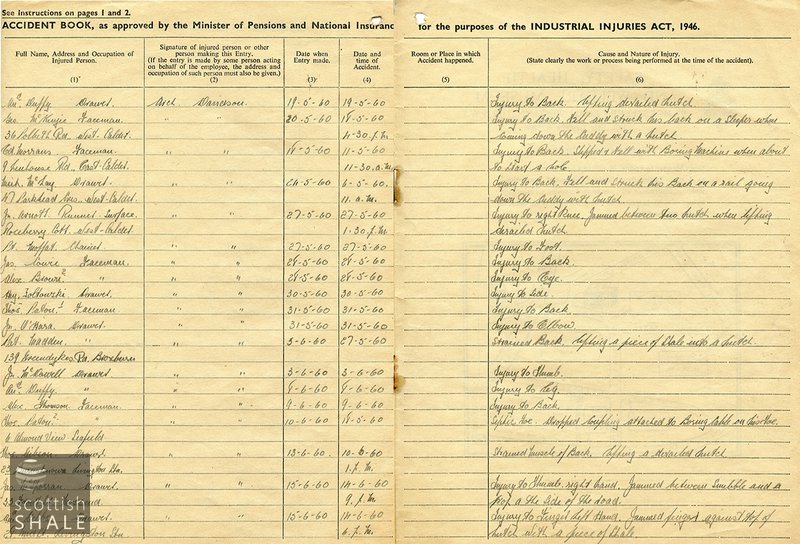 See Instructions on pages 1 and 2.
ACCIDENT BOOK, as approved by the Minister of Pensions and National Insurance for the purposes of the INDUSTRIAL INJURIES ACT, 1946.
Full Name, Address and Occupation of Injured Person. (1)
Signature of injured person or other person making this Entry. (If the entry is made by some person acting on behalf of the employee, the address and occupation of such person must also be given.) (2)
Date when Entry made. (3)
Date and time of Accident. (4)
Room or Place in which Accident happened. (5)
Cause and Nature of Injury. (State clearly the work or process being performed at the time of the accident). (6)
Duffy Drawer. Arch. Davidson 19-5-60 19-5-60 Injury to Back. Lifting derailed hutch
Geo. McKenzie Faceman. " " 20-5-60 19-5-60 Injury to Back. Fell and struck his back on a Sleeper when
Rd. West-Calder 4-30. p.m. coming down the with a hutch
Faceman " " 11-5-60 Injury to Back. Slipped & fell with Boring Machine when about
9 Rd., East-Calder. 11-30 a.m. to start a hole
Drawer " " 24-5-60 6-5-60. Injury to Back. Fell and struck his Back on a rail going
47 Parkhead West-Calder. 11. a.m. down the with hutch
Jn. Runner, Surface. " " 27-5-60 27-5-60 Injury to right knee. Jammed between two hutch when lifting
Roseberry Cott. West-Calder 1-30. p.m. derailed hutch
Moffat. " " 27-5-60 27-5-60 Injury to Foot.
Jas. Lowe Faceman. " " 28-5-60 28-5-60 Injury to Back
Alex. Brown 2 " " " 28-5-60 28-5-60 Injury to Eye.
Zoltowski Drawer. " " 30-5-60 30-5-60 Injury to Side
Thos. Paton 1 Faceman " " 31-5-60 31-5-60 Injury to Back.
Jn. O'Hara. Drawer. " " 31-5-60 31-5-60 Injury to Elbow
Pat. Madden " " " 3-6-60 27-5-60 Strained Back. Lifting a piece of Shale into a hutch.
139 Greendykes Rd. Broxburn
Jn. McDowell Drawer " " 3-6-60 3-6-60 Injury to Thumb.
Duffy " " " Injury to Leg.
Alex. Thomson Faceman. " " 9-6-60 9-6-60 Injury to Back
Thos. Paton 2 " " " 10-6-60 Septic Toe. Dropped Coupling attached to Boring Cable on his Toe.
6 Almond View Seafield
Drawer " " 13-6-60 10-6-60 Strained Muscle of Back. Lifting a derailed hutch
Livingston Stn. 1. p.m.
Drawer. " " 15-6-60 14-6-60 Injury to Thumb, right hand. Jammed between and a
9. p.m. the side of the road.
Drawer. " " 15-6-60 14-6-60 Injury to Finger left Hand. Jammed finger against top of
Livingston Stn 6. p.m. hutch with a piece of Shale.
scottish
SHALE